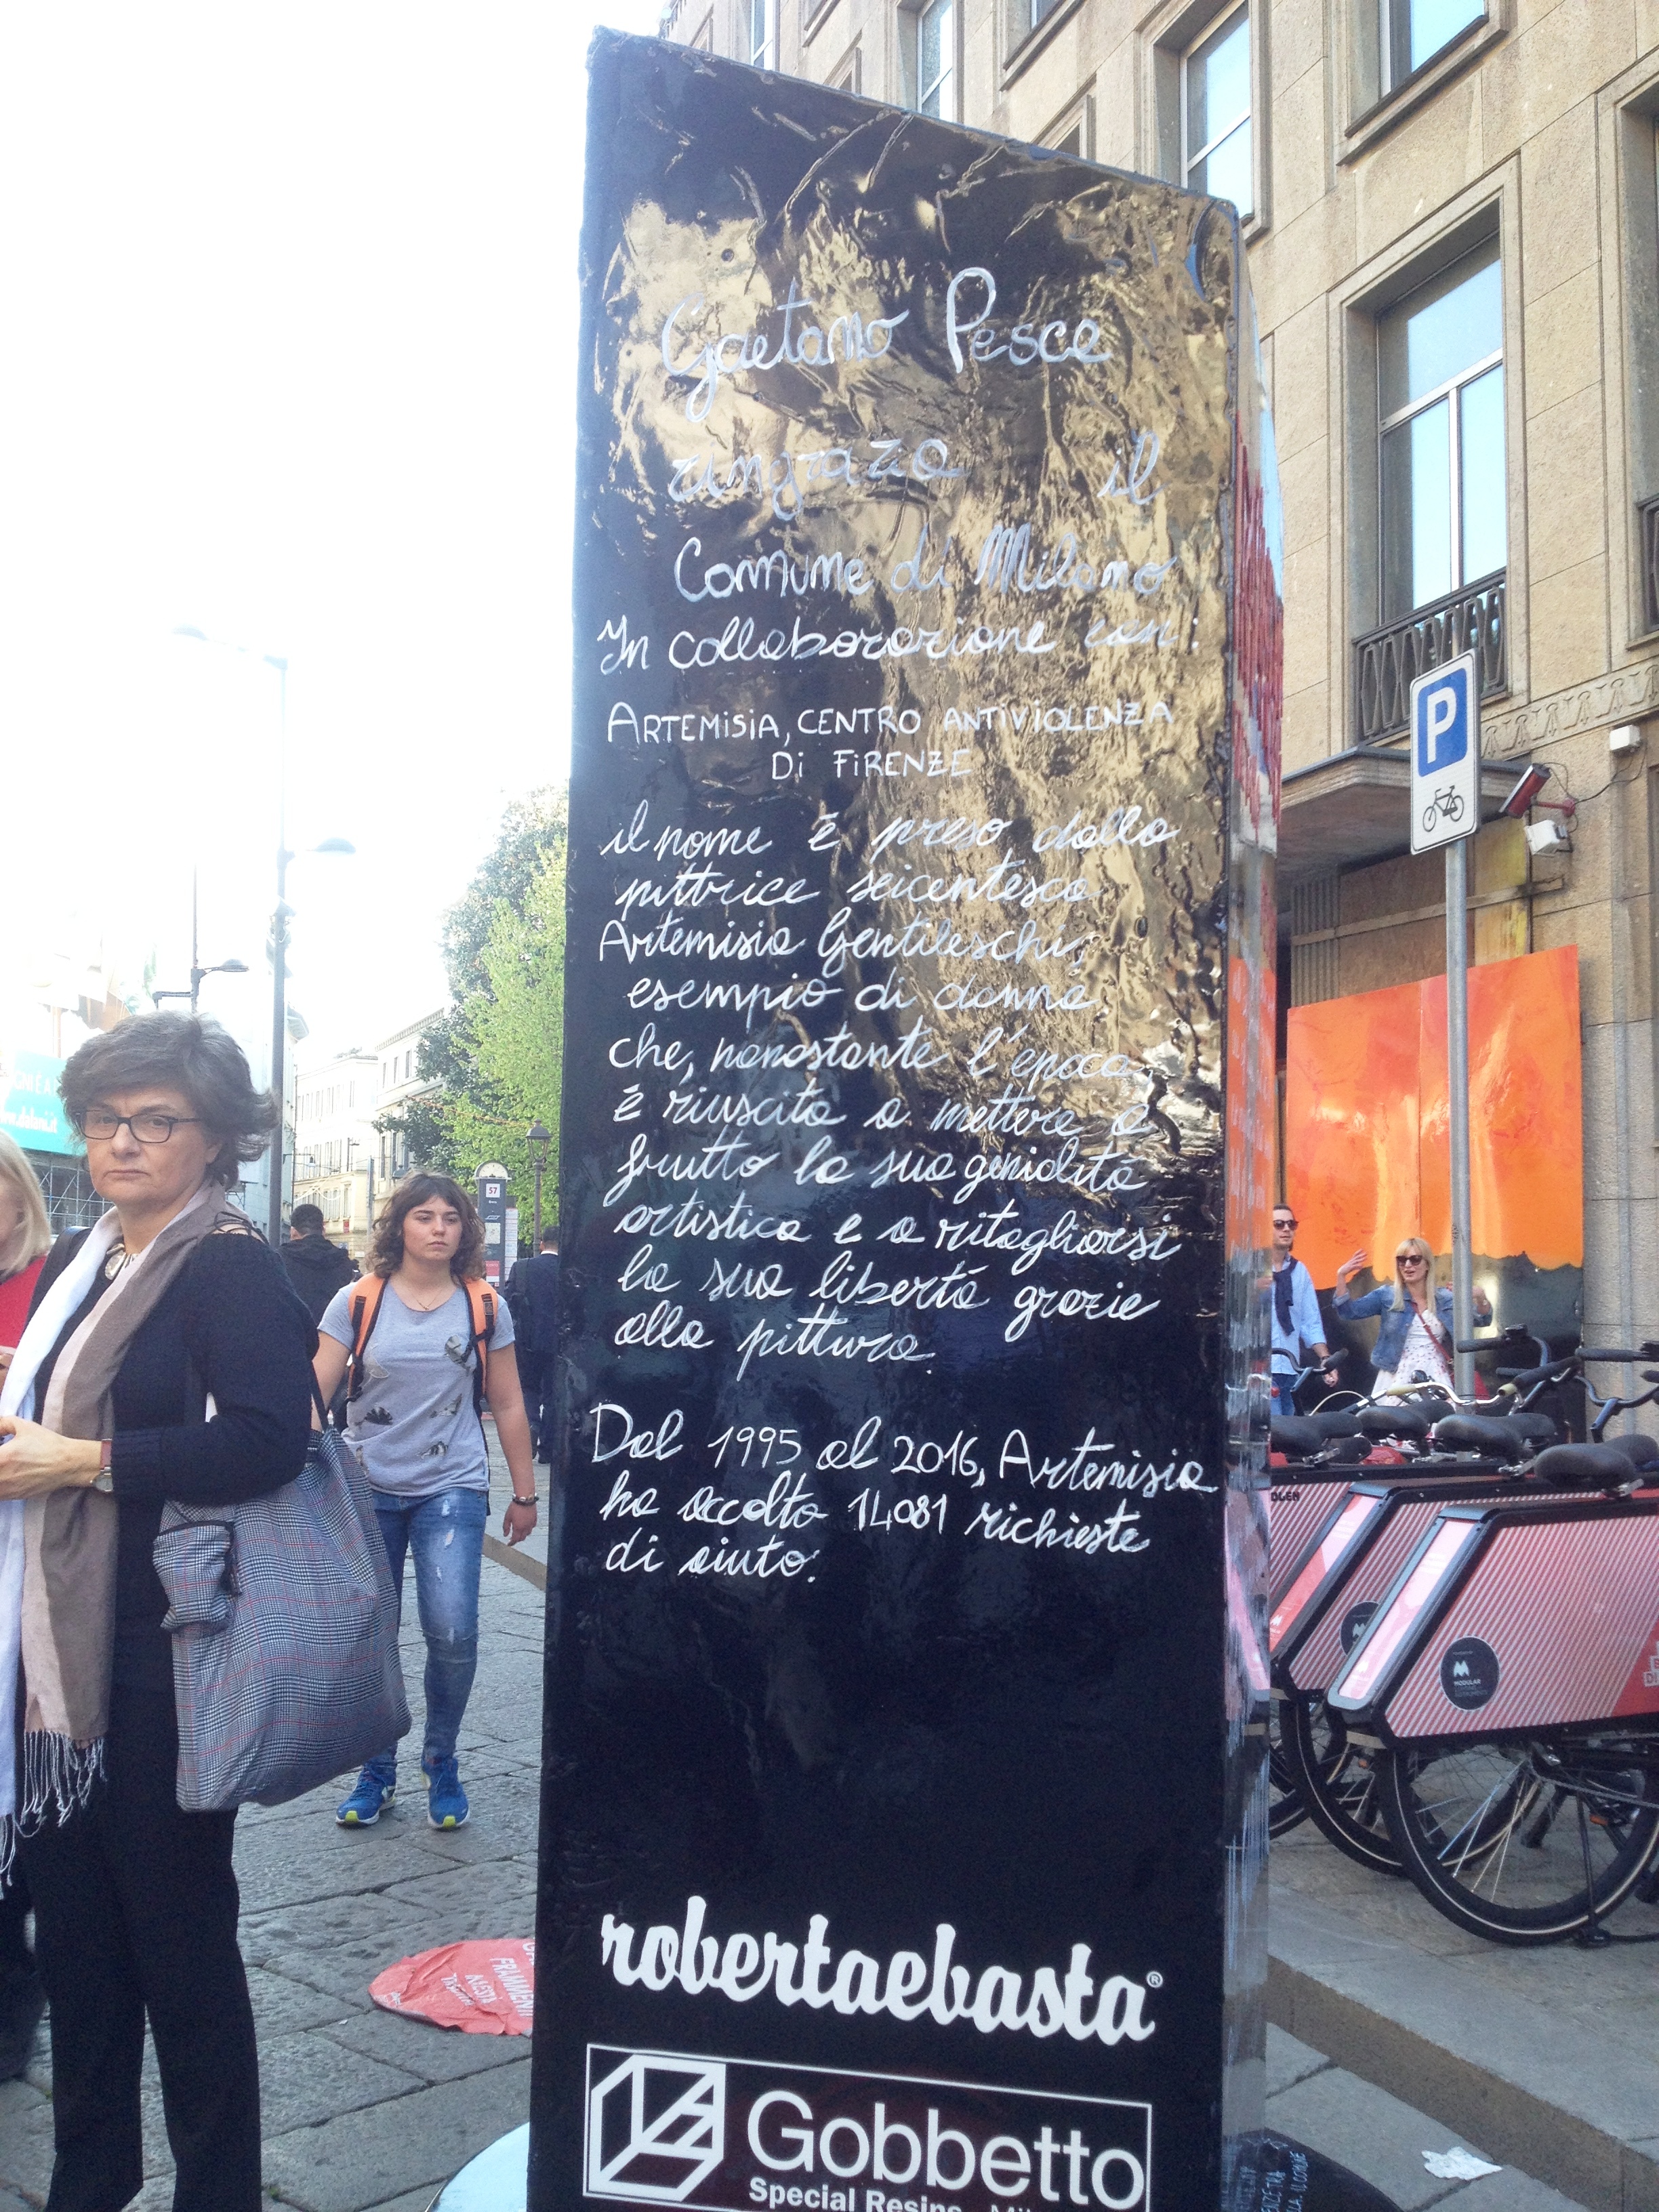 Gaetano Pesce
ringrazia il
Comune di Milano
In collaborazione con:
ARTEMISIA, CENTRO ANTIVIOLENZA
DI FIRENZE
il nome è preso dalla
pittrice seicentesca
Artemisia Gentileschi,
esempio di donna
che, nonostante l'epoca,
è riuscita a mettere a
frutto la sua genialità
artistica e a ritagliarsi
la sua libertà grazie
alla pittura.
Dal 1995 al 2016, Artemisia
ha accolto 14081 richieste
di aiuto.
robertaebasta®
Gobbetto
Special Resins
P
57
MODULAR